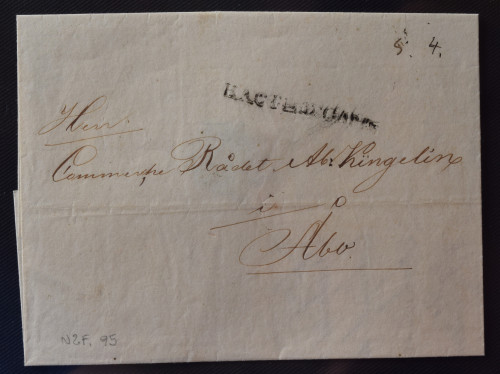 §. 4.
Herr
Commerce Rådet Ab: Kingelin
i
Åbo
N2F. 95